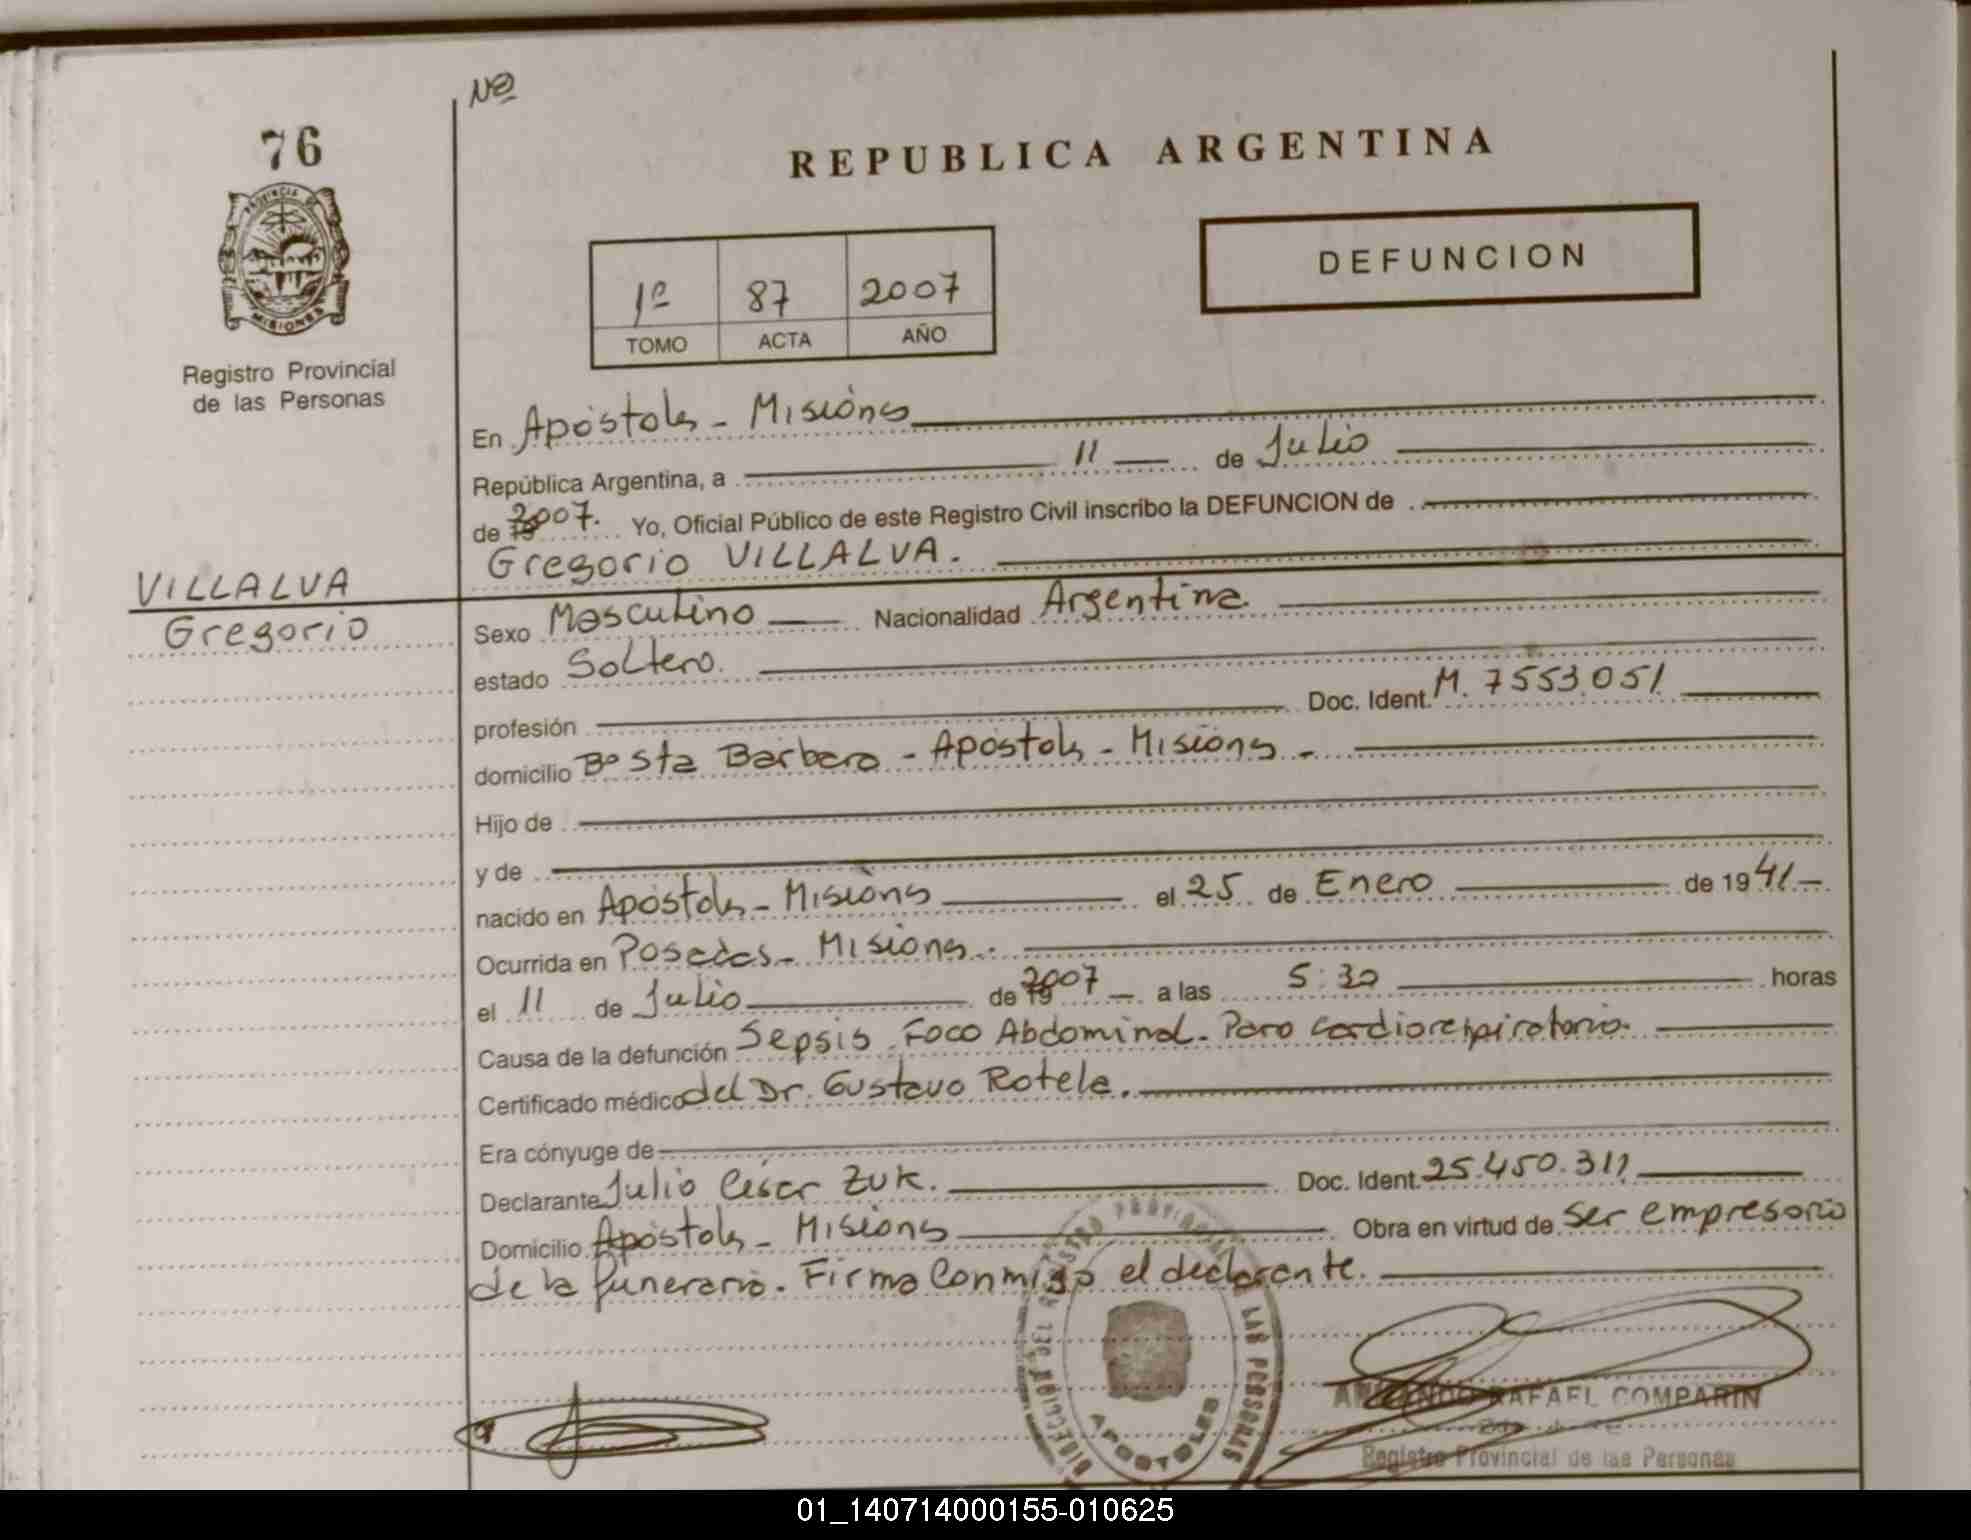 Nº
76
REPUBLICA ARGENTINA
PROVINCIA DE
MISIONES
Registro Provincial
de las Personas
DEFUNCION
1º 87 2007
TOMO ACTA AÑO
En Apóstoles - Misiones
República Argentina, a 11 de Julio
de 2007. Yo, Oficial Público de este Registro Civil inscribo la DEFUNCION de
Gregorio VILLALVA.
VILLALVA
Gregorio
Sexo Masculino Nacionalidad Argentina
estado Soltero.
profesión Doc. Ident. M. 7553.051
domicilio Bº Sta Barbara - Apóstoles - Misiones -
Hijo de
y de
nacido en Apóstoles - Misiones el 25 de Enero de 1941 -
Ocurrida en Posadas - Misiones -
el 11 de Julio de 2007 a las 5:30 horas
Causa de la defunción Sepsis Foco Abdominal - Paro cardiorespiratorio.
Certificado médico del Dr. Gustavo Rotela.
Era cónyuge de
Declarante Julio César Zuk. Doc. Ident. 25.450.311
Domicilio Apóstoles - Misiones Obra en virtud de ser empresario
de la funeraria. Firma conmigo el declarante.
DIRECCION DEL REGISTRO PROVINCIAL DE LAS PERSONAS
APOSTOLES
RAFAEL COMPARIN
Registro Provincial de las Personas
01_140714000155-010625